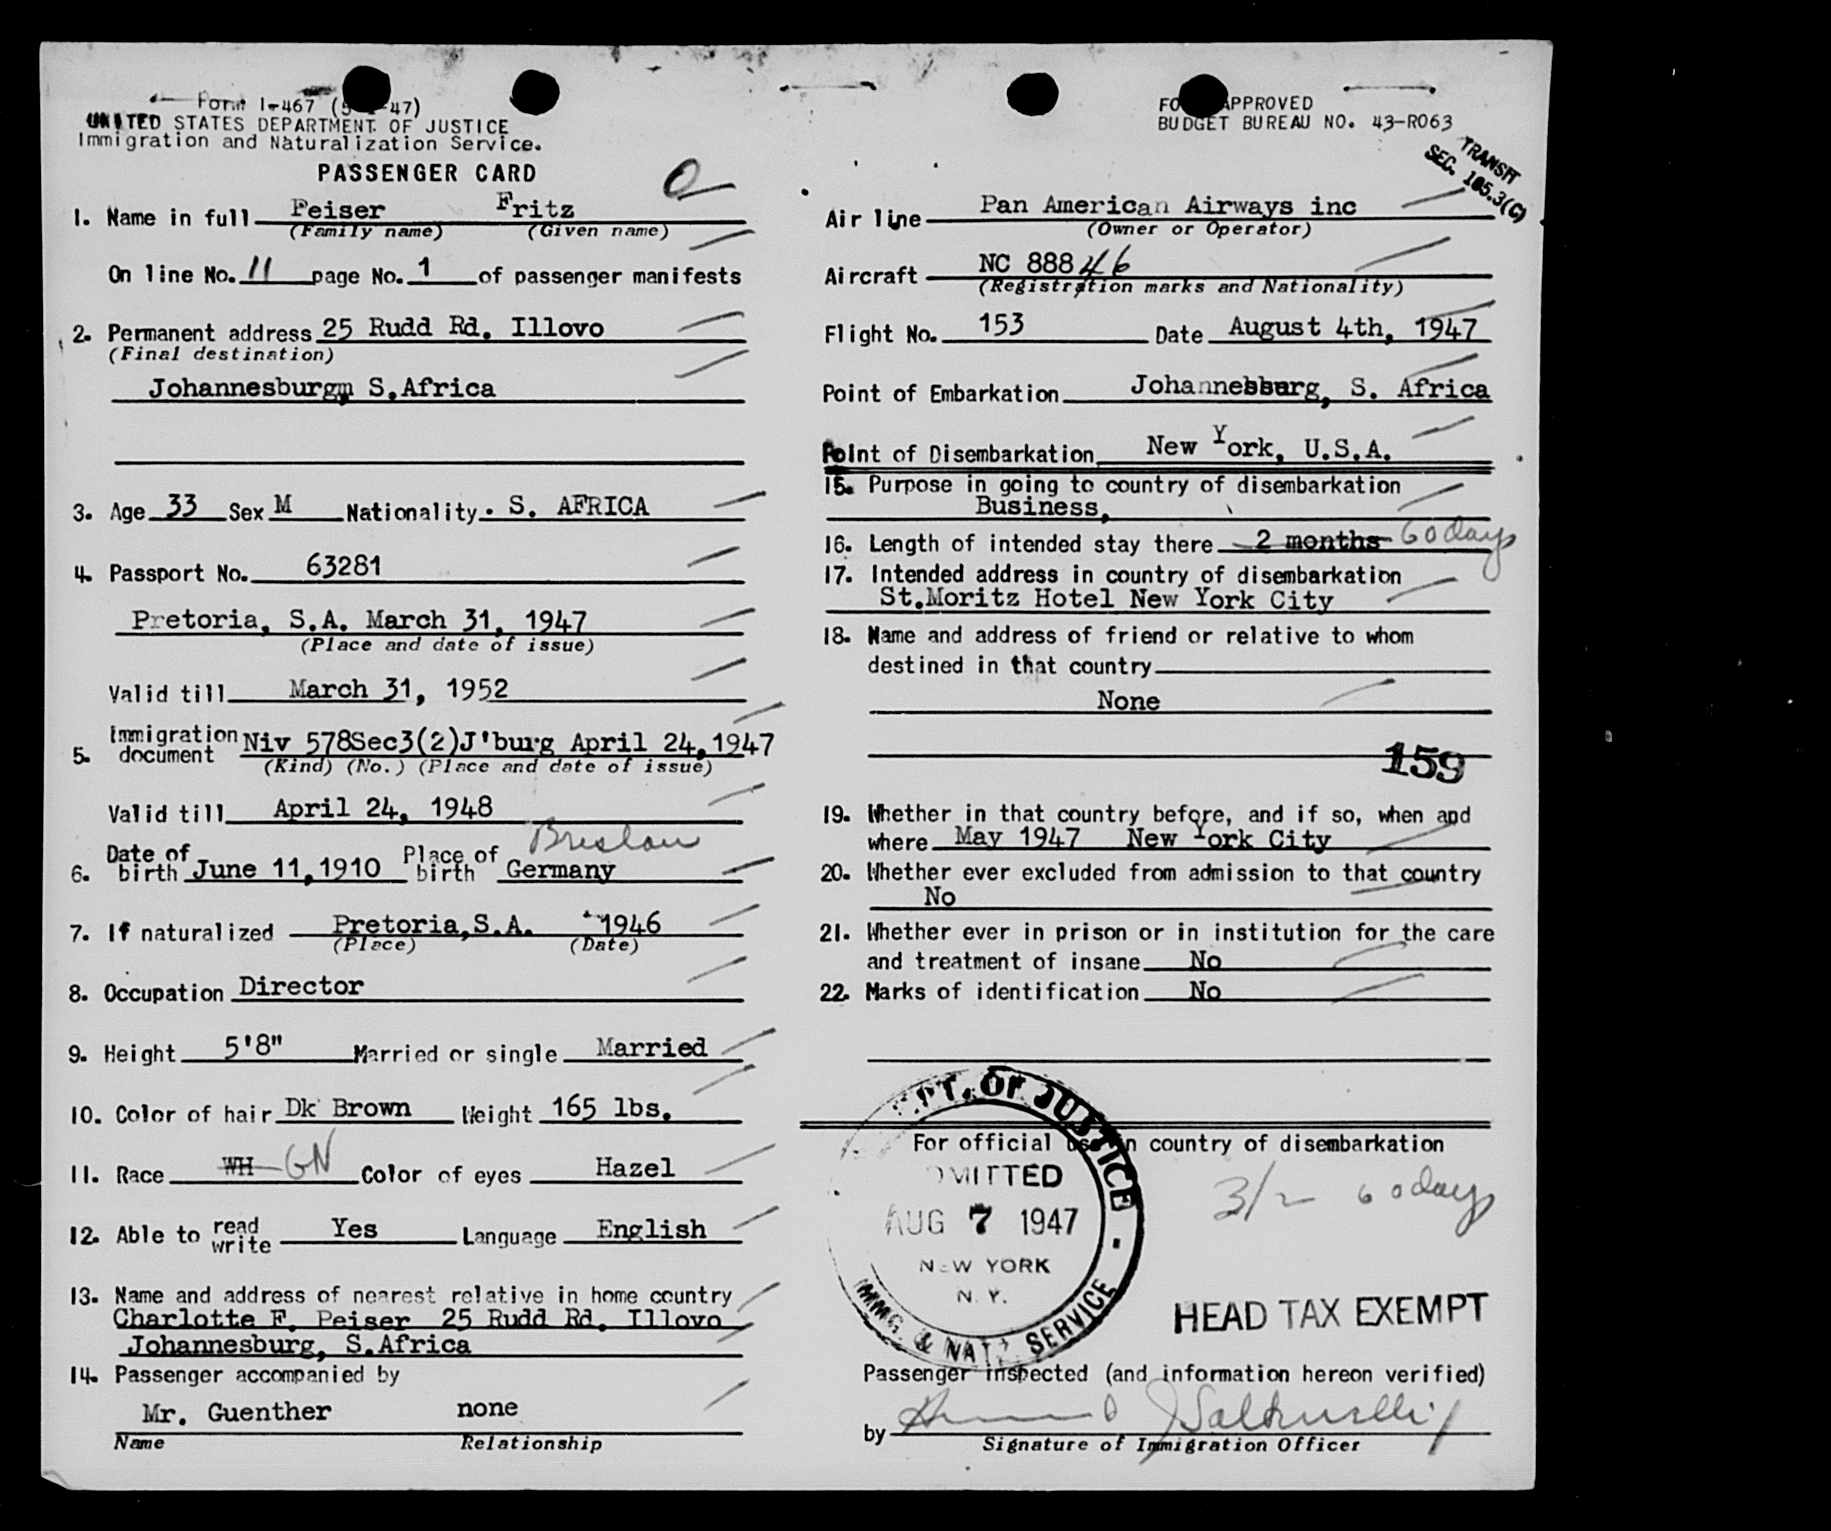 Form I-467 (5- -47)
UNITED STATES DEPARTMENT OF JUSTICE
Immigration and Naturalization Service.
PASSENGER CARD
1. Name in full Peiser Fritz
(Family name) (Given name)
On line No. 11 page No. 1 of passenger manifests
2. Permanent address 25 Rudd Rd. Illovo
(Final destination)
Johannesburgm S.Africa
3. Age 33 Sex M Nationality. S. AFRICA
4. Passport No. 63281
Pretoria, S.A. March 31, 1947
(Place and date of issue)
Valid till March 31, 1952
5. Immigration document Niv 578Sec3(2)J'burg April 24,1947
(Kind) (No.) (Place and date of issue)
Valid till April 24, 1948
Breslau
6. Date of birth June 11,1910 Place of birth Germany
7. If naturalized Pretoria,S.A. 1946
(Place) (Date)
8. Occupation Director
9. Height 5'8" Married or single Married
10. Color of hair Dk Brown Weight 165 lbs.
11. Race WH GN Color of eyes Hazel
12. Able to read write Yes Language English
13. Name and address of nearest relative in home country
Charlotte F. Peiser 25 Rudd Rd. Illovo
Johannesburg, S.Africa
14. Passenger accompanied by
Mr. Guenther none
Name Relationship
FORM APPROVED
BUDGET BUREAU NO. 43-R063
TRANSIT
SEC. 105.3(C)
Air line Pan American Airways inc
(Owner or Operator)
Aircraft NC 88846
(Registration marks and Nationality)
Flight No. 153 Date August 4th, 1947
Point of Embarkation Johannesburg, S. Africa
Point of Disembarkation New York, U.S.A.
15. Purpose in going to country of disembarkation
Business,
16. Length of intended stay there 2 months 60 days
17. Intended address in country of disembarkation
St.Moritz Hotel New York City
18. Name and address of friend or relative to whom
destined in that country
None
159
19. Whether in that country before, and if so, when and
where May 1947 New York City
20. Whether ever excluded from admission to that country
No
21. Whether ever in prison or in institution for the care
and treatment of insane No
22. Marks of identification No
For official use in country of disembarkation
DEPT. OF JUSTICE
ADMITTED
AUG 7 1947
NEW YORK
N. Y.
IMMG. & NATZ SERVICE
3/2 60 days
HEAD TAX EXEMPT
Passenger inspected (and information hereon verified)
by
Signature of Immigration Officer